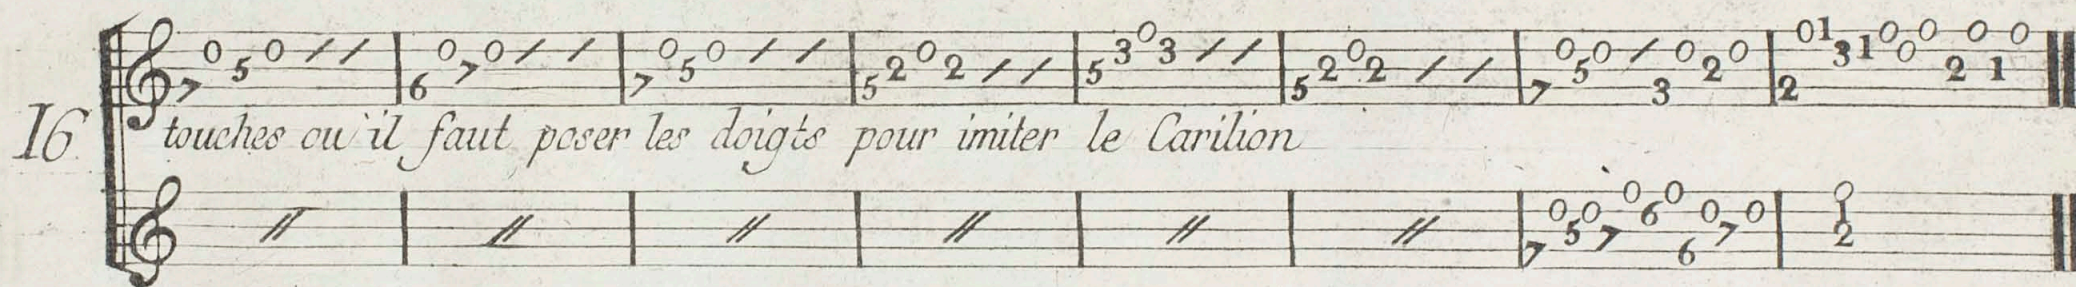 7 0 5 0 6 0 7 0 7 0 5 0 5 2 0 2 5 3 0 3 5 2 0 2 7 0 5 0 3 0 2 0 2 0 1 3 1 0 0 0 2 0 1 0
16
touches ou il faut poser les doigts pour imiter le Carilion
7 0 5 0 7 0 6 0 6 0 7 0 0 1 2